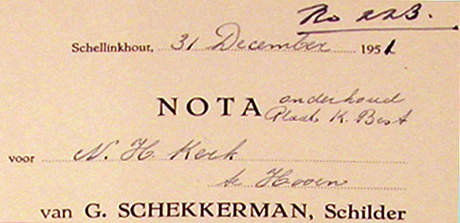 Ro 22B.
Schellinkhout, 31 December 1951
NOTA onderhoud
Plaats K. Best
voor N. H. Kerk
te Hoorn
van G. SCHEKKERMAN, Schilder